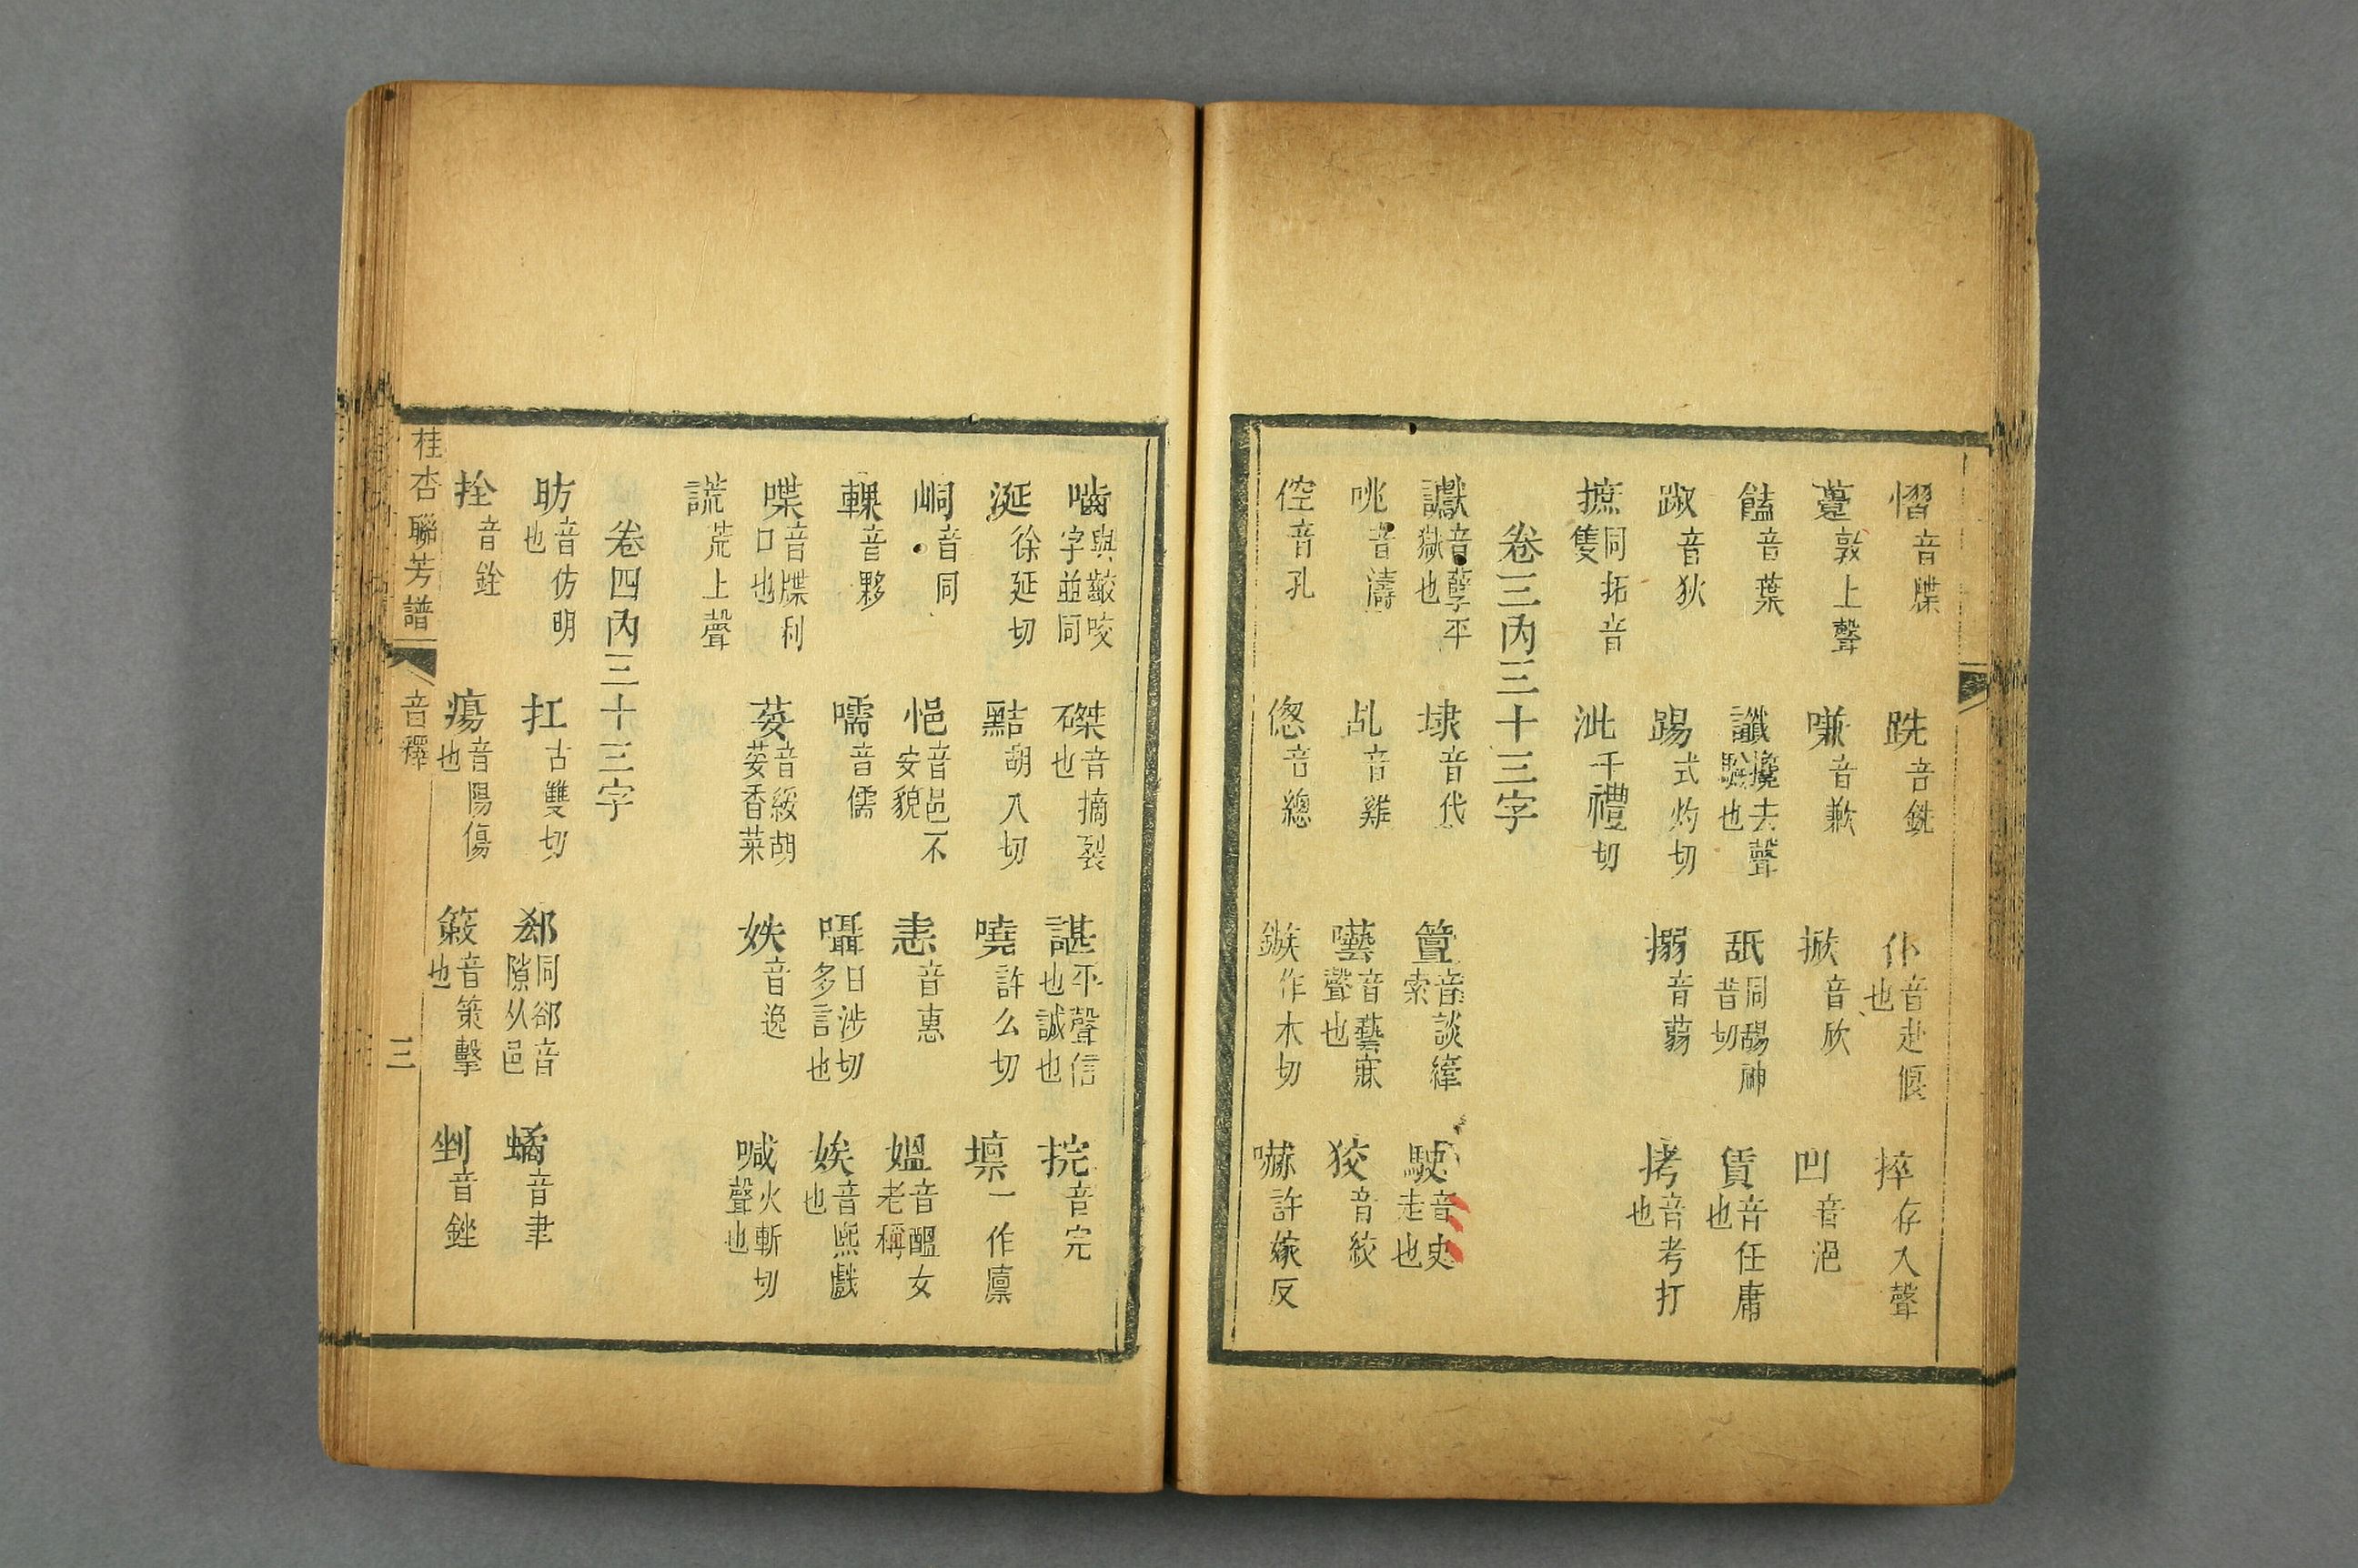 慴音牒 跣音銑 仆音赴偃也 捽存入聲
躉敦上聲 嗛音歉 掀音欣 凹音浥
饁音葉 讖攙去聲驗也 舐同䑛神昔切 賃音任庸也
踧音狄 踢式灼切 搦音蒻 拷音考打也
摭同拓音隻 泚千禮切
卷三內三十三字
讞音孽平獄也 埭音代 簟音談繂索 駛音史走也
咷音濤 乩音雞 囈音藝寐聲也 狡音絞
倥音孔 傯音總 鏃作木切 嚇許嫁反
嚙與齩咬字並同 磔音摘裂也 諶平聲信也誠也 捖音完
涎徐延切 黠胡八切 嘵許么切 壈一作廩
峒音同 悒音邑不安貌 恚音惠 媼音醞女老稱
輠音夥 嚅音儒 囁日涉切多言也 娭音熙戲也
喋音牒利口也 荽音綏胡荽香菜 妷音逸 喊火斬切聲也
謊荒上聲
卷四內三十三字
昉音仿明也 扛古雙切 郄同郤音隙从邑 蟜音聿
拴音銓 瘍音陽傷也 筴音策擊也 剉音銼
桂杏聯芳譜 音釋 三